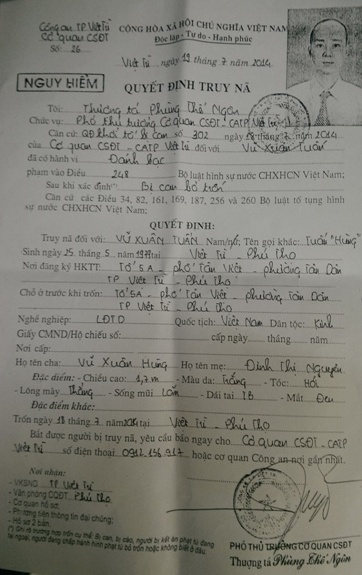 Công an TP Việt Trì
Cơ quan CSĐT
Số: 26
CỘNG HÒA XÃ HỘI CHỦ NGHĨA VIỆT NAM
Độc lập - Tự do - Hạnh phúc
Việt Trì, ngày 19 tháng 7 năm 2014
NGUY HIỂM
QUYẾT ĐỊNH TRUY NÃ
Tôi: Thượng tá Phùng Thế Ngôn
Chức vụ: Phó thủ trưởng Cơ quan CSĐT - CATP Việt Trì
Căn cứ: QĐ khởi tố bị can số 302 ngày 18 tháng 7 năm 2014
của Cơ quan CSĐT - CATP Việt Trì đối với Vũ Xuân Tuấn
đã có hành vi Đánh bạc
phạm vào Điều 248 Bộ luật hình sự nước CHXHCN Việt Nam;
Sau khi xác định Bị can bỏ trốn
Căn cứ các Điều 34, 82, 161, 169, 187, 256 và 260 Bộ luật tố tụng hình
sự nước CHXHCN Việt Nam;
QUYẾT ĐỊNH:
Truy nã đối với: VŨ XUÂN TUẤN Nam/nữ; Tên gọi khác: Tuấn "Hưng"
Sinh ngày 25 tháng 5 năm 1977 tại Việt Trì - Phú Thọ
Nơi đăng ký HKTT: Tổ 5A - phố Tân Việt - phường Tân Dân
TP Việt Trì - Phú Thọ
Chỗ ở trước khi trốn: Tổ 5A - phố Tân Việt - phường Tân Dân
TP Việt Trì - Phú Thọ
Nghề nghiệp: LĐTD Quốc tịch: Việt Nam Dân tộc: Kinh
Giấy CMND/Hộ chiếu số: cấp ngày tháng năm
Nơi cấp:
Họ tên cha: Vũ Xuân Hưng Họ tên mẹ: Đinh Thị Nguyên
Đặc điểm: - Chiều cao: 1,7m - Màu da: Trắng - Tóc: Hói
- Lông mày Thẳng - Sống mũi Lõm - Dái tai TB - Mắt Đen
Đặc điểm khác:
Trốn ngày 18 tháng 7 năm 2014 tại Việt Trì - Phú Thọ
Bắt được người bị truy nã, yêu cầu báo ngay cho Cơ quan CSĐT - CATP
Việt Trì số điện thoại 0912.156.917 hoặc cơ quan Công an nơi gần nhất.
Nơi nhận:
- VKSND TP Việt Trì
- Văn phòng CQĐT Phú Thọ
- Cơ quan hồ sơ;
- Phương tiện thông tin đại chúng;
- Hồ sơ 2 bản.
PHÓ THỦ TRƯỞNG CƠ QUAN CSĐT
Thượng tá Phùng Thế Ngôn